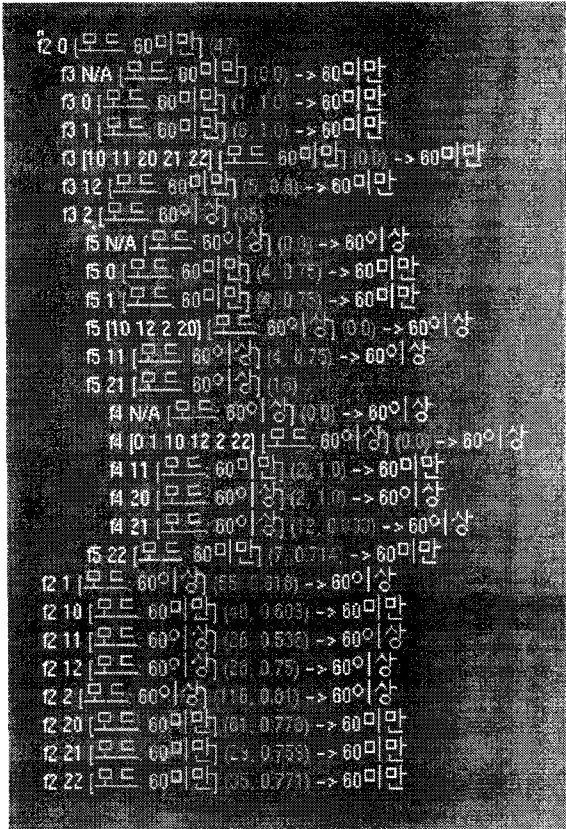 f2 0 [모드: 60미만] (47)
f3 N/A [모드: 60미만] (0.0) -> 60미만
f3 0 [모드: 60미만] (1, 1.0) -> 60미만
f3 1 [모드: 60미만] (6, 1.0) -> 60미만
f3 [10 11 20 21 22] [모드: 60미만] (0.0) -> 60미만
f3 12 [모드: 60미만] (5, 0.8) -> 60미만
f3 2 [모드: 60이상] (35)
f5 N/A [모드: 60이상] (0.0) -> 60이상
f5 0 [모드: 60미만] (4, 0.75) -> 60미만
f5 1 [모드: 60미만] (4, 0.75) -> 60미만
f5 [10 12 2 20] [모드: 60이상] (0.0) -> 60이상
f5 11 [모드: 60이상] (4, 0.75) -> 60이상
f5 21 [모드: 60이상] (16)
f4 N/A [모드: 60이상] (0.0) -> 60이상
f4 [0 1 10 12 2 22] [모드: 60이상] (0.0) -> 60이상
f4 11 [모드: 60미만] (2, 1.0) -> 60미만
f4 20 [모드: 60이상] (2, 1.0) -> 60이상
f4 21 [모드: 60이상] (12, 0.833) -> 60이상
f5 22 [모드: 60미만] (7, 0.714) -> 60미만
f2 1 [모드: 60이상] (55, 0.618) -> 60이상
f2 10 [모드: 60미만] 0.603) -> 60미만
f2 11 [모드: 60이상] 0.536) -> 60이상
f2 12 [모드: 60이상] (28, 0.75) -> 60이상
f2 2 [모드: 60이상] (116, 0.81) -> 60이상
f2 20 [모드: 60미만] (61, 0.770) -> 60미만
f2 21 [모드: 60미만] (29, 0.759) -> 60미만
f2 22 [모드: 60미만] (35, 0.771) -> 60미만